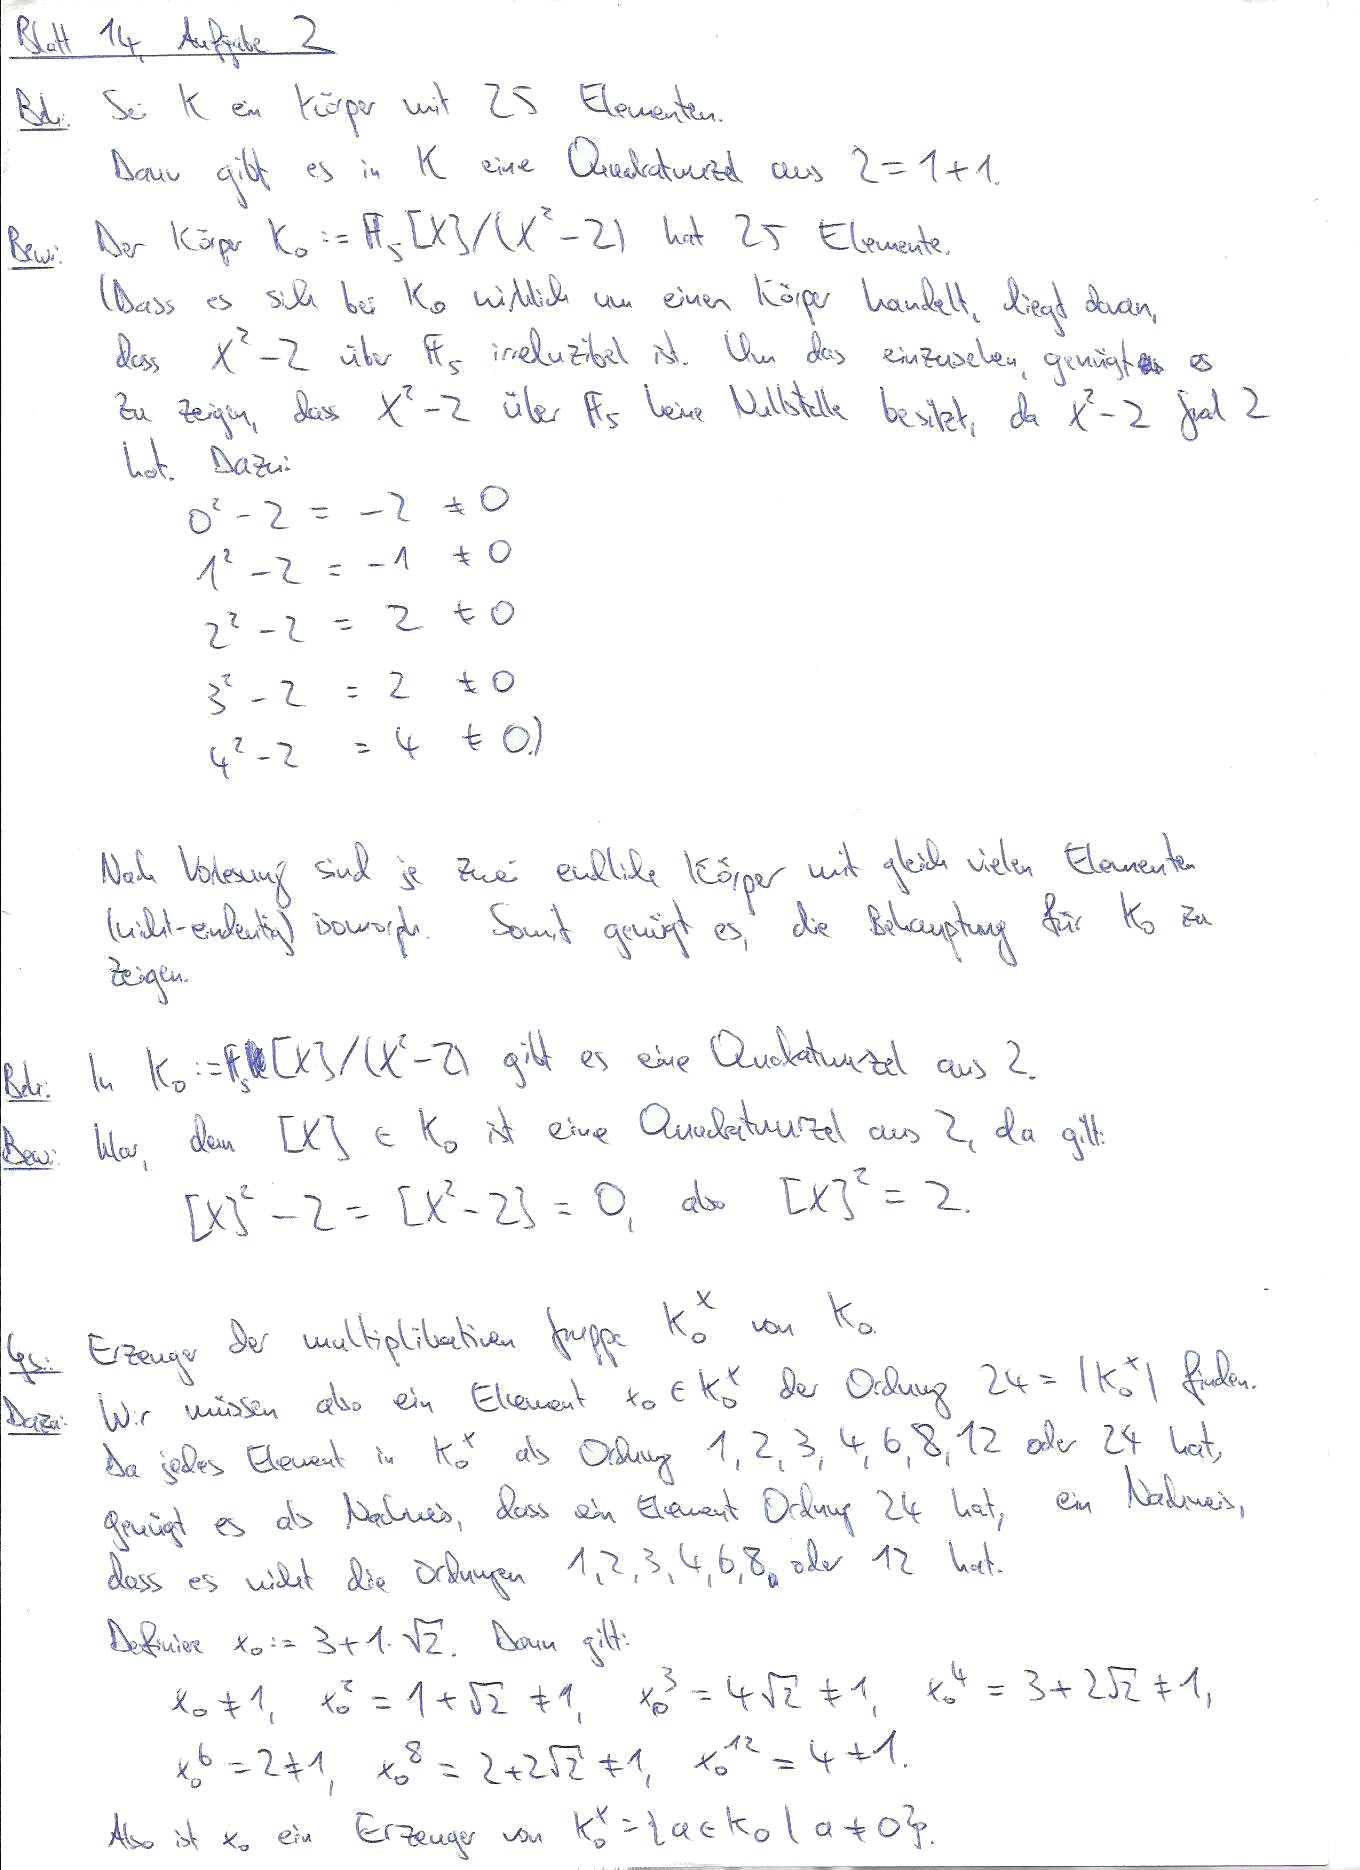 Blatt 14, Aufgabe 2
Beh.: Sei K ein Körper mit 25 Elementen.
Dann gibt es in K eine Quadratwurzel aus 2 = 1 + 1.
Bew.: Der Körper K₀ := 𝔽₅[X]/(X² − 2) hat 25 Elemente.
(Dass es sich bei K₀ wirklich um einen Körper handelt, liegt daran,
dass X² − 2 über 𝔽₅ irreduzibel ist. Um das einzusehen, genügt es
zu zeigen, dass X² − 2 über 𝔽₅ keine Nullstelle besitzt, da X² − 2 Grad 2
hat. Dazu:
0² − 2 = −2 ≠ 0
1² − 2 = −1 ≠ 0
2² − 2 = 2 ≠ 0
3² − 2 = 2 ≠ 0
4² − 2 = 4 ≠ 0.)
Nach Vorlesung sind je zwei endliche Körper mit gleich vielen Elementen
(nicht-eindeutig) isomorph. Somit genügt es, die Behauptung für K₀ zu
zeigen.
Beh.: In K₀ := 𝔽₅[X]/(X² − 2) gibt es eine Quadratwurzel aus 2.
Bew.: Klar, denn [X] ∈ K₀ ist eine Quadratwurzel aus 2, da gilt:
[X]² − 2 = [X² − 2] = 0, also [X]² = 2.
Ges.: Erzeuger der multiplikativen Gruppe K₀ˣ von K₀.
Dazu: Wir müssen also ein Element x₀ ∈ K₀ˣ der Ordnung 24 = |K₀ˣ| finden.
Da jedes Element in K₀ˣ als Ordnung 1, 2, 3, 4, 6, 8, 12 oder 24 hat,
genügt es als Nachweis, dass ein Element Ordnung 24 hat, ein Nachweis,
dass es nicht die Ordnungen 1, 2, 3, 4, 6, 8 oder 12 hat.
Definiere x₀ := 3 + 1·√2. Dann gilt:
x₀ ≠ 1, x₀² = 1 + √2 ≠ 1, x₀³ = 4√2 ≠ 1, x₀⁴ = 3 + 2√2 ≠ 1,
x₀⁶ = 2 ≠ 1, x₀⁸ = 2 + 2√2 ≠ 1, x₀¹² = 4 ≠ 1.
Also ist x₀ ein Erzeuger von K₀ˣ = {a ∈ K₀ | a ≠ 0}.